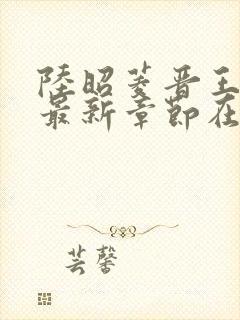 陸昭菱晋王
最新章節在
芸馨